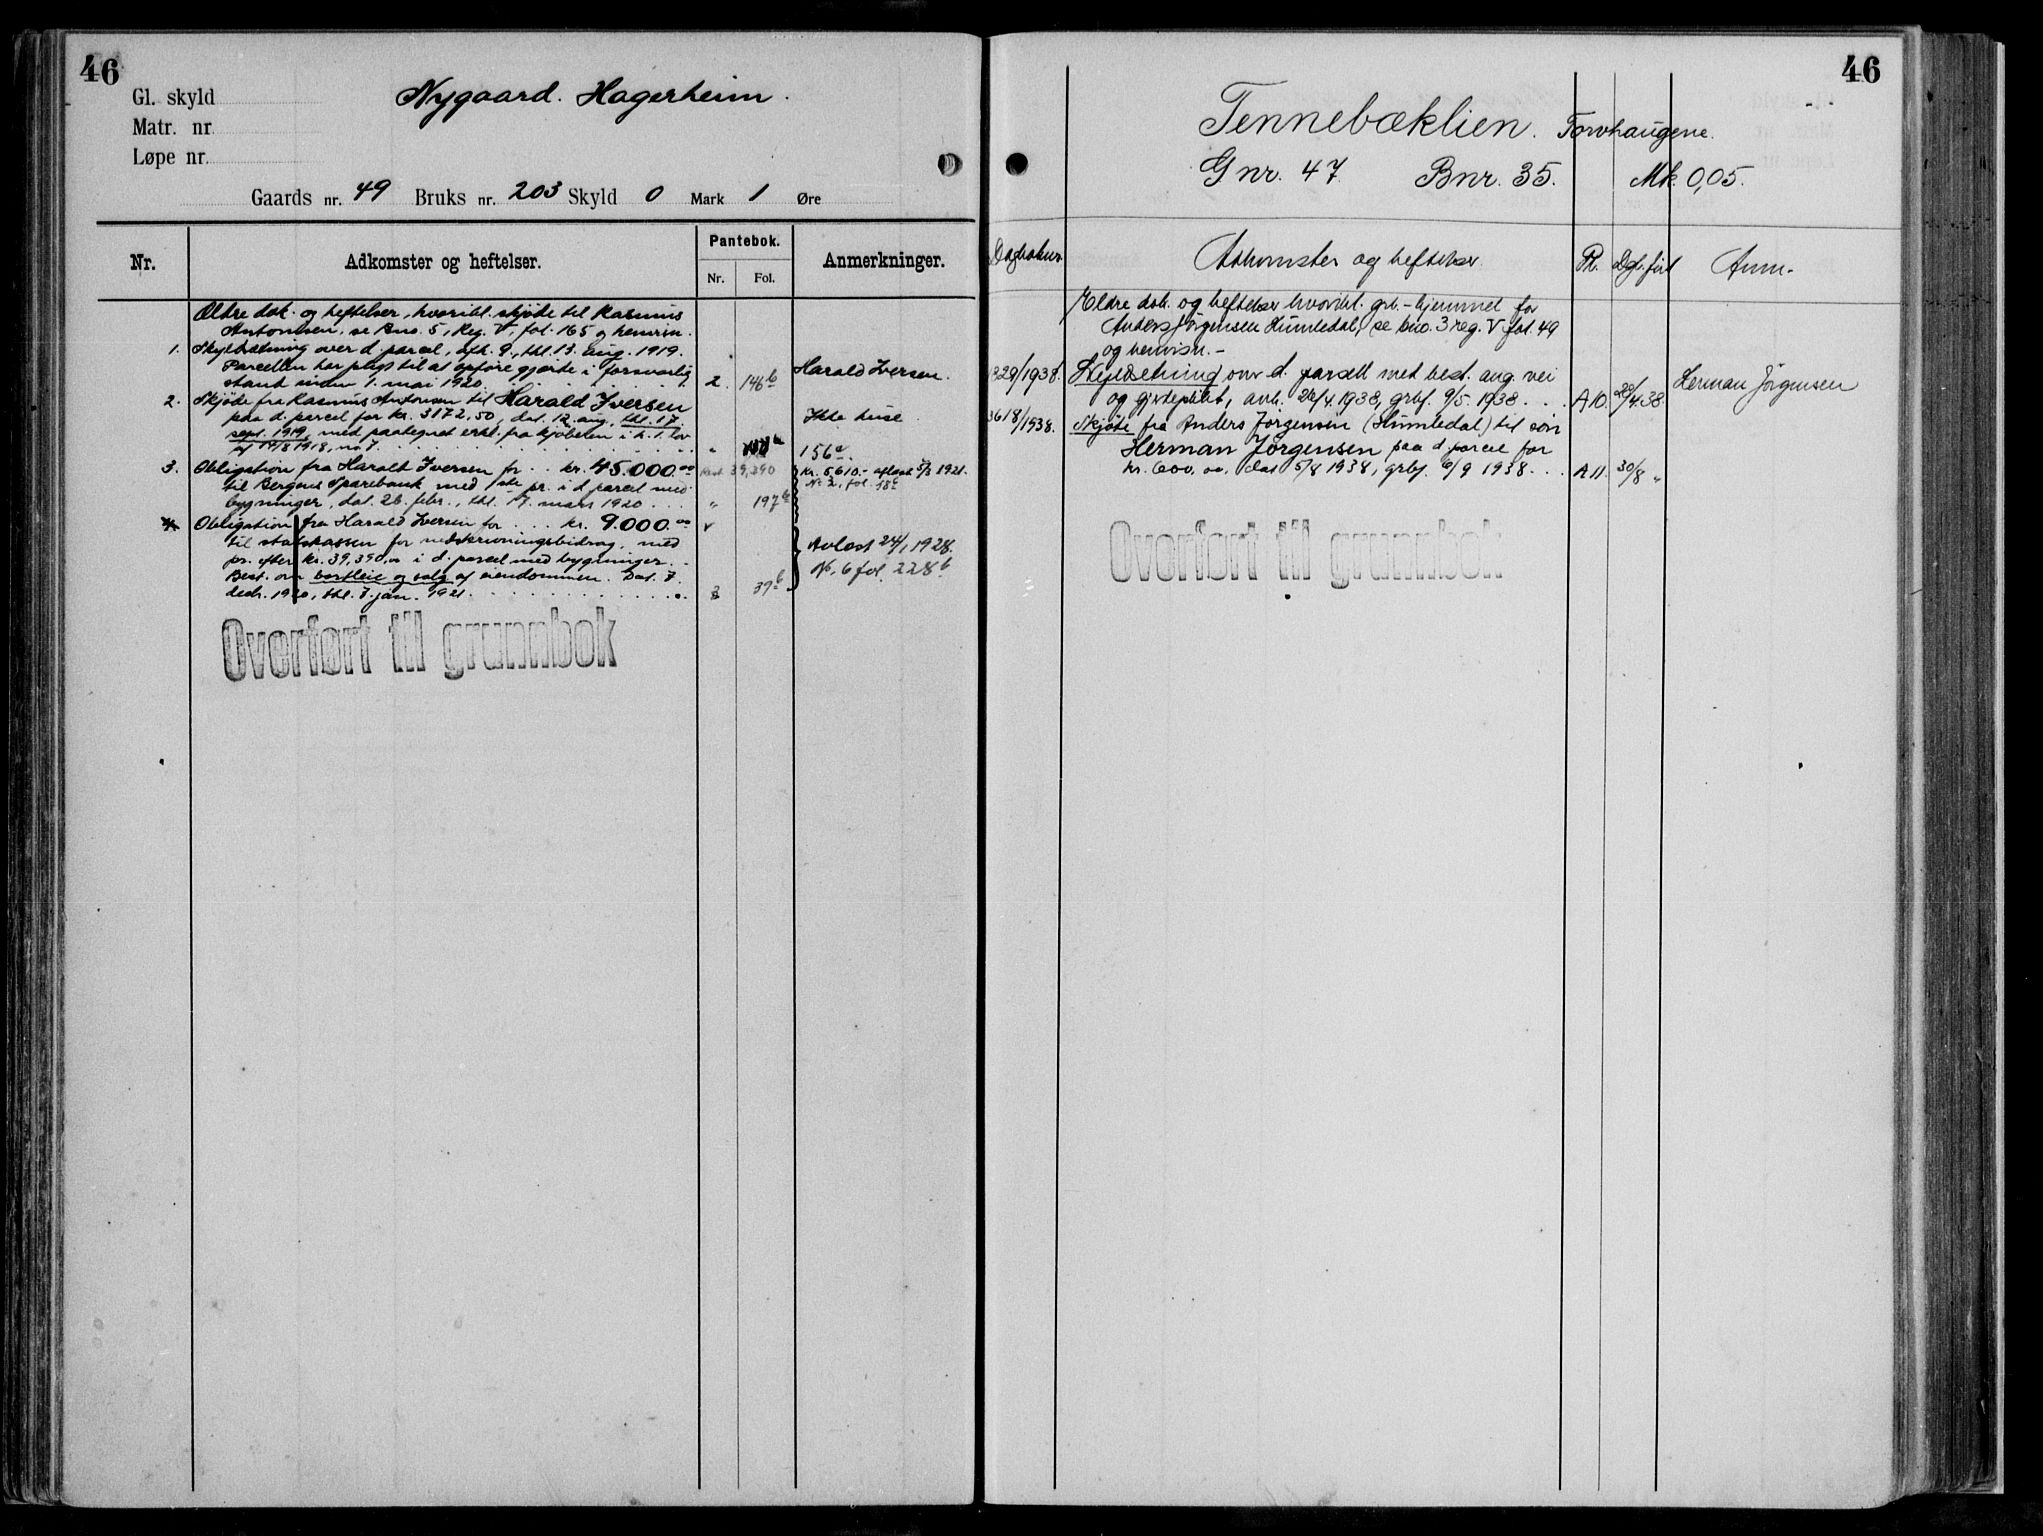 46
Gl. skyld
Matr. nr.
Løpe nr.
Nygaard. Hagerheim.
Gaards nr. 49 Bruks nr. 203 Skyld 0 Mark 1 Øre
Nr.
Adkomster og heftelser.
Pantebok.
Nr. Fol.
Anmerkninger.
Ældre dok. og heftelser, hvoribl. skjøde til Rasmus
Antonisen, se Bno. 5, Reg. V, fol. 165 og henvisn.
1. Skyldsætning over d. parcel, afh. 9., thl. 13. aug. 1919.
Parcellen har pligt til at opføre gjærde i forsvarlig
stand inden 1. mai 1920. 2. 146b Harald Iversen.
2. Skjøde fra Rasmus Antonisen til Harald Iversen
paa d. parcel for kr. 3172,50, dat. 12. aug., thl. 17
sept. 1919, med paategnet erkl. fra kjøberen i h. t. lov
af 14/8 1918, no 7. " 156a. Ikke huse
3. Obligation fra Harald Iversen for kr. 45.000.00 Rest 39,390 kr. 5610.- aflæst 5/3 1921.
til Bergens Sparebank med 1ste pr. i d. parcel med No 2, fol. 58c
bygninger, dat. 26. febr., thl. 17. mars 1920. " 197b
4. Obligation fra Harald Iversen for kr. 9.000.00
til statskassen for nedskrivningsbidrag, med
pr. efter kr. 39,390,00 i d. parcel med bygninger.
Best. om bortleie og salg af eiendommen. Dat. 7.
decbr. 1920, thl. 7. jan. 1921. 3 39b
Avlæst 24/1 1928.
No. 6 fol. 228b
Overført til grunnbok
46
Tennebæklien. Torvhaugene.
G nr. 47. Bnr. 35. Mk. 0,05.
Dagboknr. Adkomster og heftelser. Pb. Dgb. ført Anm.
Eldre dok. og heftelser hvoribl. grb-hjemmel for
Anders Jørgensen Humledal, se bno. 3 reg. V fol. 49
og henvisn. -
1829/1938. Skyldsetning over d. parsell med best. ang. vei
og gjerdeplikt, avh. 26/4 1938, grbf. 9/5 1938. A 10. 28/4.38. Herman Jørgensen
3618/1938. Skjøte fra Anders Jørgensen (Humledal) til søn
Herman Jørgensen paa d. parcel for
kr. 600,00, dat 5/8 1938, grbf. 6/9 1938. A 11. 30/8 "
Overført til grunnbok